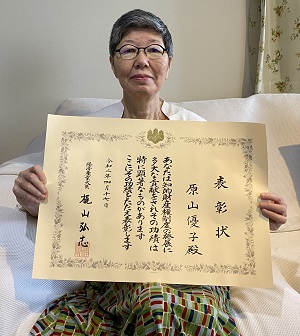 表彰状
原山優子殿
あなたは知的財産権制度の発展に
多大な貢献をされその功績は
特に顕著なものがあります
ここにその功績をたたえ表彰します
令和二年四月十七日
経済産業大臣 梶山弘志